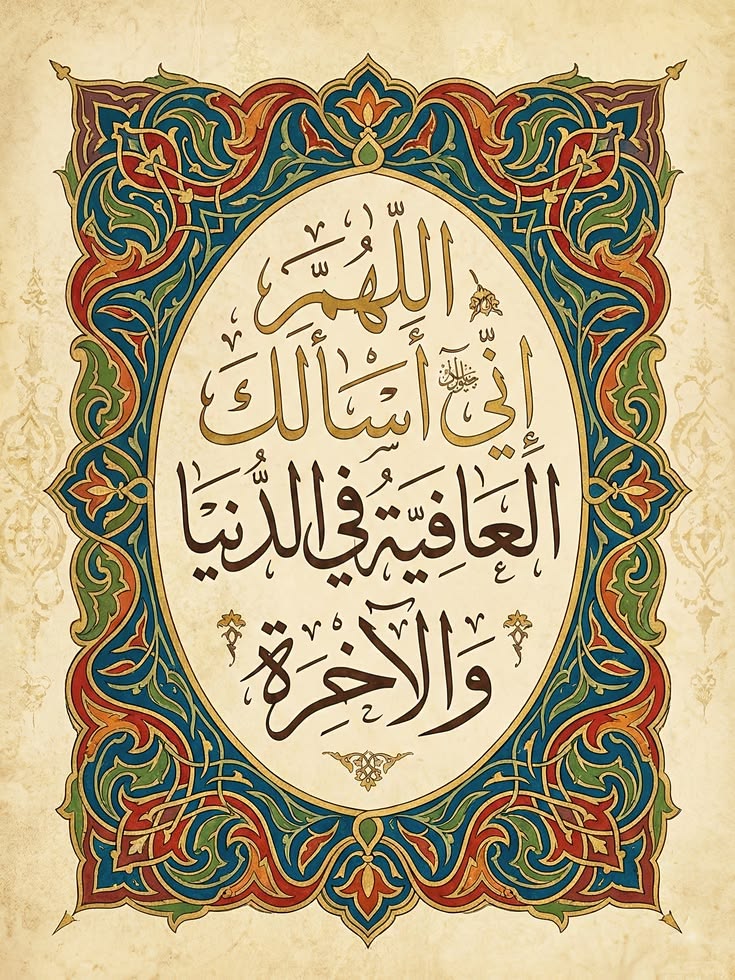 اللّهُمَّ
إِنِّي أَسْأَلُكَ
العَافِيَّة في الدُّنْيَا
وَالآخِرَة